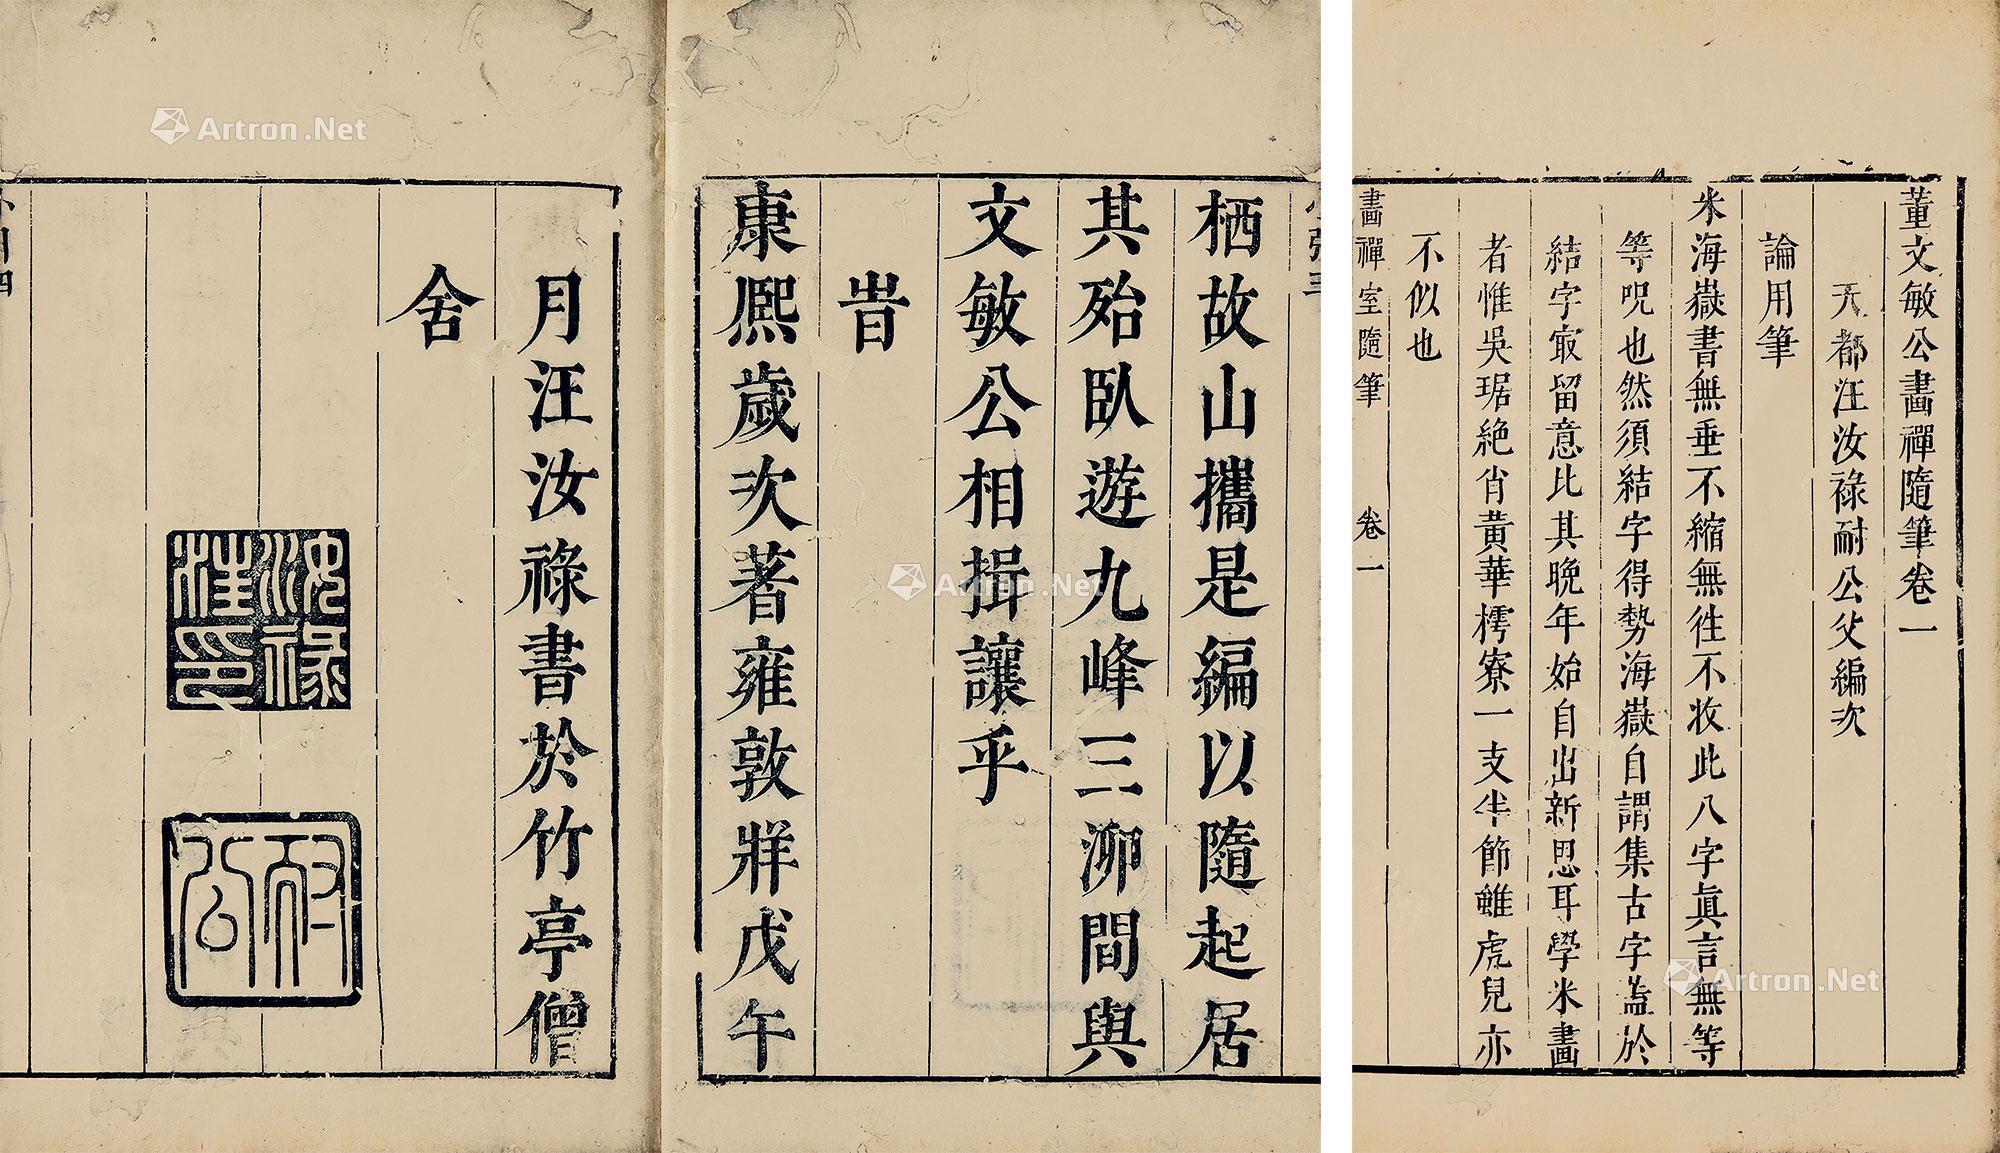 董文敏公畫禪隨筆卷一
天都汪汝祿耐公父編次
論用筆
米海嶽書無垂不縮無徃不收此八字眞言無等
等呪也然須結字得勢海嶽自謂集古字葢於
結字㝡留意比其晚年始自出新思耳學米畫
者惟吳琚絶肖黃華樗寮一支半節雖虎兒亦
不似也
畫禪室隨筆 卷一
栖故山攜是編以隨起居
其殆臥遊九峰三泖間與
文敏公相揖讓乎
旹
康熙歲次著雍敦牂戊午
月汪汝祿書於竹亭僧
舍
汝祿
汪印
耐
公
Artron.Net
Artron.Net
Artron.Net